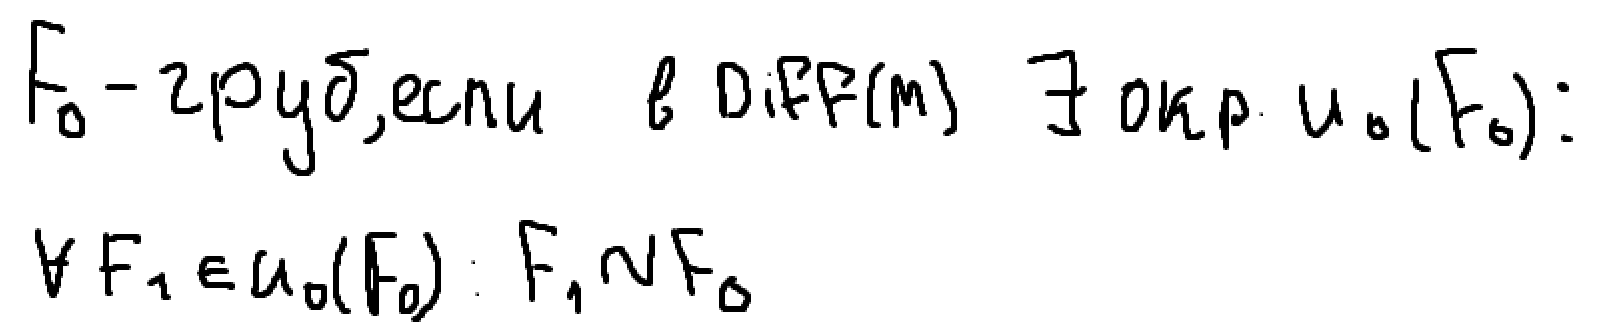 F₀ - груб, если в Diff(M) ∃ окр. U₀(F₀):
∀ F₁ ∈ U₀(F₀): F₁ ~ F₀